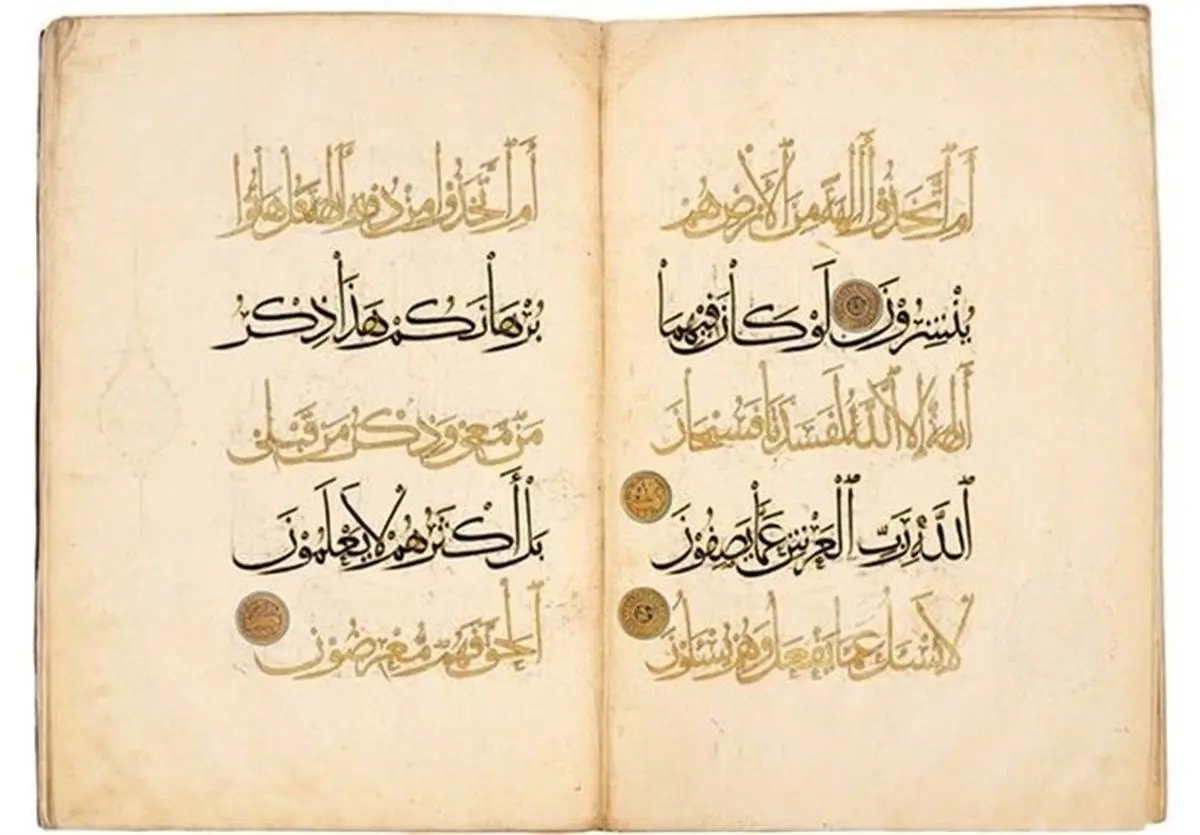 أَمِ ٱتَّخَذُوا أَالِهَةً مِنَ ٱلْأَرْضِ هُمْ
يُنْشِرُونَ لَوْ كَانَ فِيهِمَا
أَالِهَةٌ إِلَّا ٱللَّهُ لَفَسَدَتَا فَسُبْحَانَ
ٱللَّهِ رَبِّ ٱلْعَرْشِ عَمَّا يَصِفُونَ
لَا يُسْئَلُ عَمَّا يَفْعَلُ وَهُمْ يُسْئَلُونَ
أَمِ ٱتَّخَذُوا مِنْ دُونِهِ أَالِهَةً قُلْ هَاتُوا
بُرْهَانَكُمْ هَذَا ذِكْرُ
مَنْ مَعِيَ وَذِكْرُ مَنْ قَبْلِي
بَلْ أَكْثَرُهُمْ لَا يَعْلَمُونَ
ٱلْحَقَّ فَهُمْ مُعْرِضُونَ